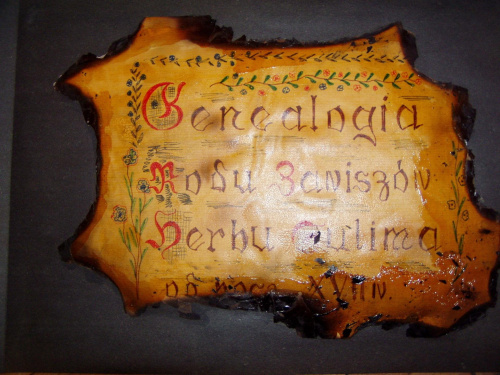 Genealogia
Rodu Zawiszów
Herbu Sulima
od pocz. XVII w.